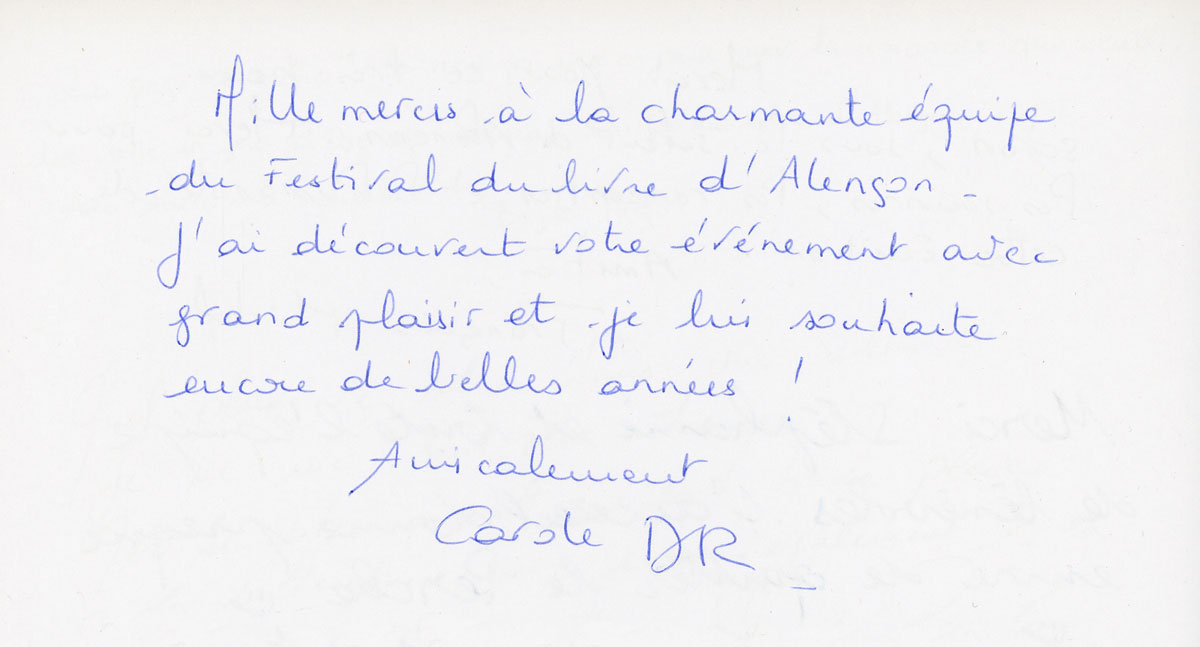 Mille mercis à la charmante équipe
du Festival du livre d'Alençon -
J'ai découvert votre événement avec
grand plaisir et je lui souhaite
encore de belles années !
Amicalement
Carole DR